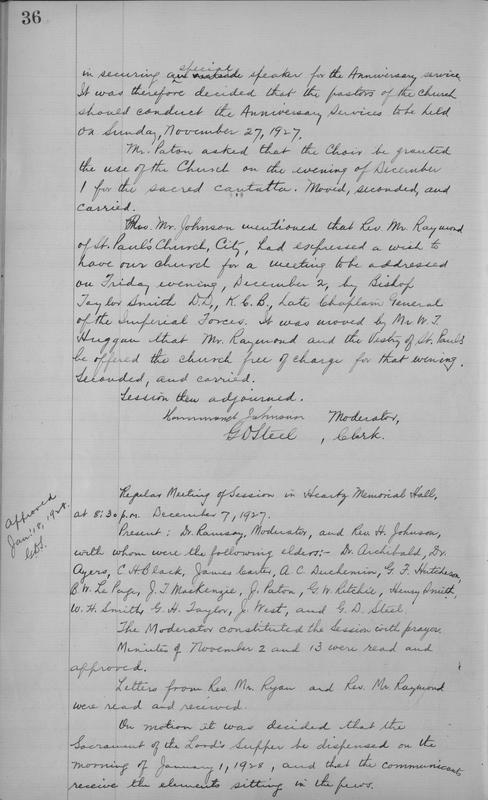 36
in securing a special speaker for the Anniversary service.
It was therefore decided that the pastors of the Church
should conduct the Anniversary Services to be held
on Sunday, November 27, 1927.
Mr. Paton asked that the Choir be granted
the use of the Church on the evening of December
1 for the sacred cantatta. Moved, seconded, and
carried.
Rev. Mr. Johnson mentioned that Rev. Mr. Raymond
of St. Paul's Church, City, had expressed a wish to
have our church for a meeting to be addressed
on Friday evening, December 2, by Bishop
Taylor Smith D.D., K.C.B., Late Chaplain General
of the Imperial Forces. It was moved by Mr. W. T.
Huggan that Mr. Raymond and the Vestry of St. Paul's
be offered the church free of charge for that evening.
Seconded, and carried.
Session then adjourned.
Hammond Johnson Moderator,
G D Steel, Clerk.
Regular Meeting of Session in Heartz Memorial Hall,
at 8:30 p.m. December 7, 1927.
Approved
Jan. 18, 1928.
G.D.S.
Present: Dr. Ramsay, Moderator, and Rev. H. Johnson,
with whom were the following elders:- Dr. Archibald, Dr.
Ayers, C H Black, James Carter, A. C. Duchemin, G. F. Hutcheson,
B. W. Le Page, J. T. Mackenzie, J. Paton, G. W. Ritchie, Henry Smith,
W. H. Smith, G. H. Taylor, J. West, and G. D. Steel.
The Moderator constituted the Session with prayer.
Minutes of November 2 and 13 were read and
approved.
Letters from Rev. Mr. Ryan and Rev. Mr. Raymond
were read and received.
On motion it was decided that the
Sacrament of the Lord's Supper be dispensed on the
morning of January 1, 1928, and that the communicants
receive the elements sitting in the pews.